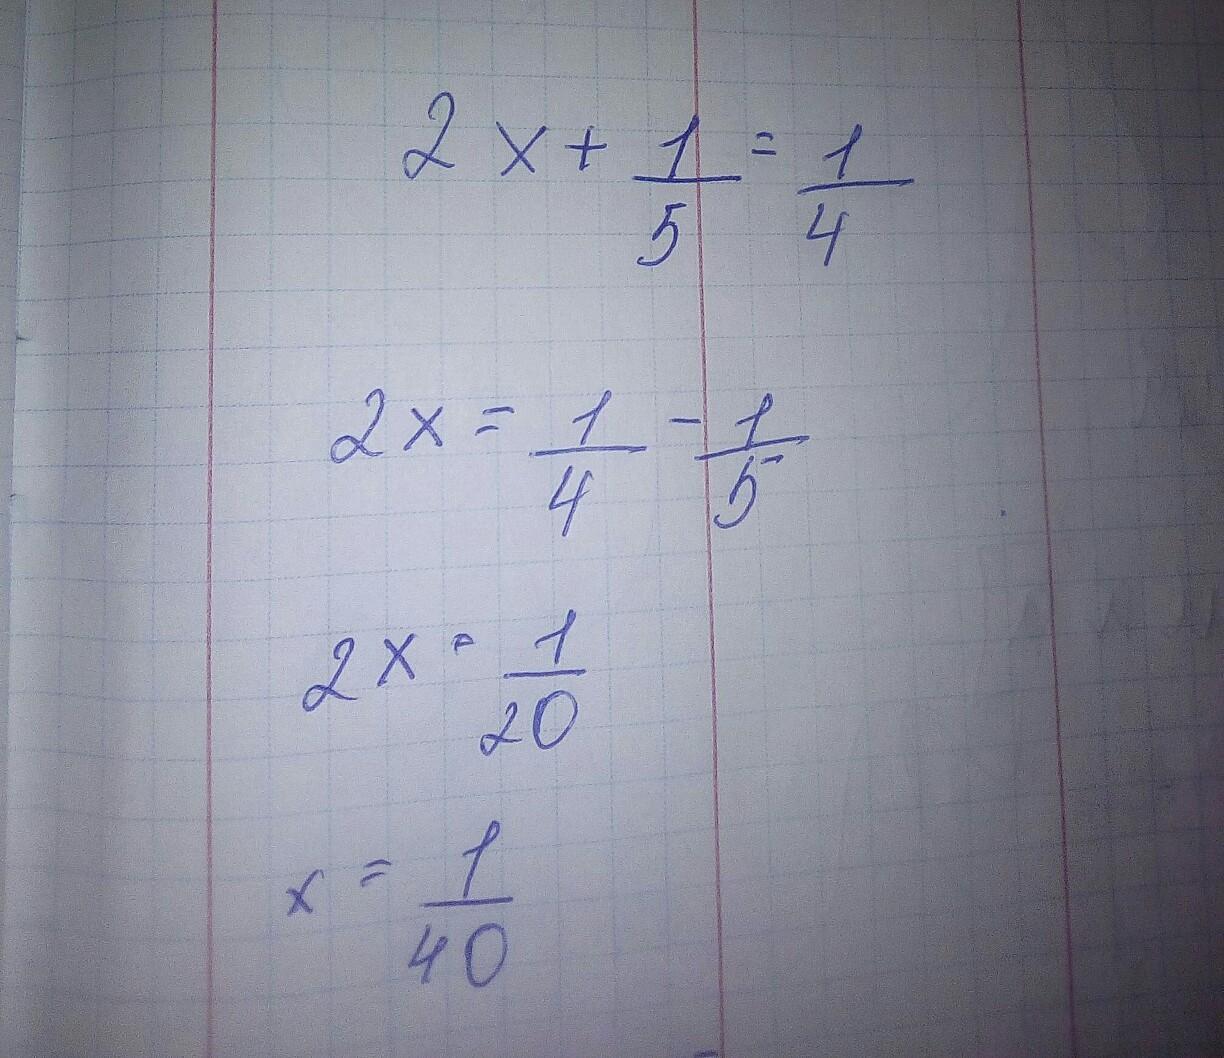 2x + 1/5 = 1/4
2x = 1/4 - 1/5
2x = 1/20
x = 1/40